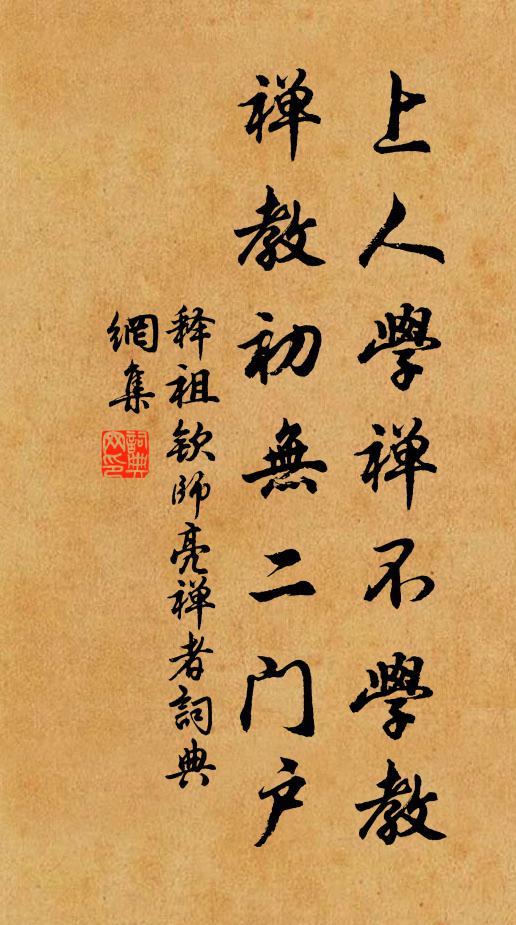 上人學禅不學教
禅教初無二门户
释祖钦师亮禅者詞典
網集
詞典
网印